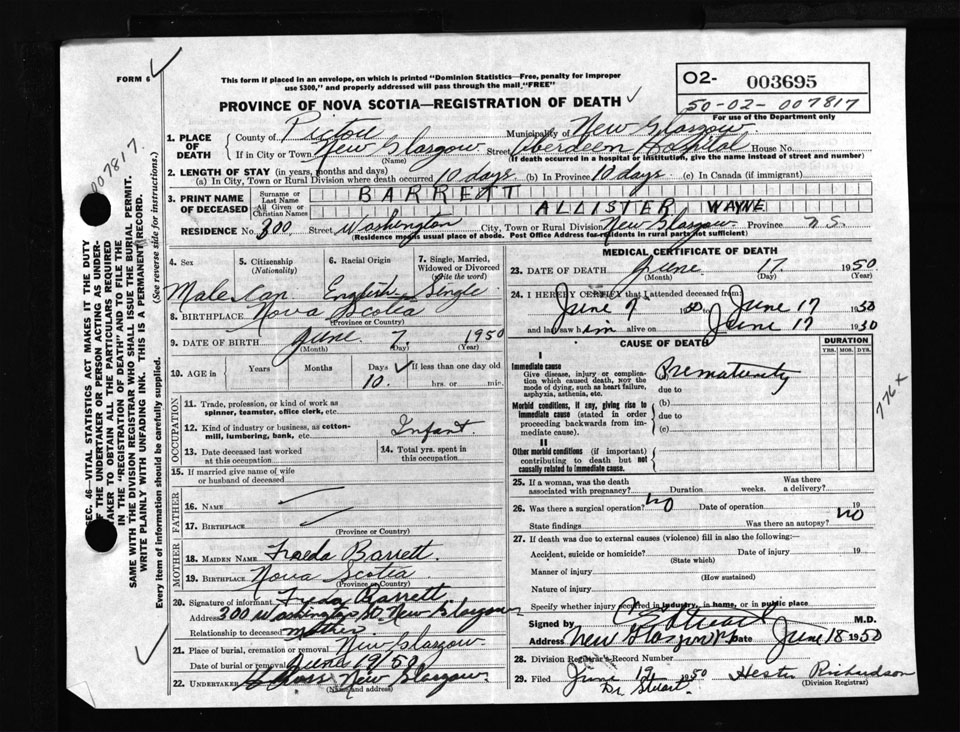 FORM 6
This form if placed in an envelope, on which is printed "Dominion Statistics—Free, penalty for improper
use $300," and properly addressed will pass through the mail "FREE"
PROVINCE OF NOVA SCOTIA—REGISTRATION OF DEATH
O2- 003695
50-02-007817
For use of the Department only
007817.
SEC. 46—VITAL STATISTICS ACT MAKES IT THE DUTY
OF THE UNDERTAKER OR PERSON ACTING AS UNDER-
TAKER TO OBTAIN ALL THE PARTICULARS REQUIRED
IN THE "REGISTRATION OF DEATH" AND TO FILE THE
SAME WITH THE DIVISION REGISTRAR WHO SHALL ISSUE THE BURIAL PERMIT.
WRITE PLAINLY WITH UNFADING INK. THIS IS A PERMANENT RECORD.
Every item of information should be carefully supplied. (See reverse side for instructions.)
1. PLACE OF DEATH County of Pictou Municipality of New Glasgow
If in City or Town New Glasgow (Name) Street Aberdeen Hospital House No.
(If death occurred in a hospital or institution, give the name instead of street and number)
2. LENGTH OF STAY (in years, months and days)
(a) In City, Town or Rural Division where death occurred 10 days (b) In Province 10 days (c) In Canada (if immigrant)
3. PRINT NAME OF DECEASED Surname or Last Name BARRETT
All Given or Christian Names ALLISTER WAYNE
RESIDENCE No. 300 Street Washington City, Town or Rural Division New Glasgow Province N.S.
(Residence means usual place of abode. Post Office Address for residents in rural parts not sufficient)
4. Sex 5. Citizenship (Nationality) 6. Racial Origin 7. Single, Married, Widowed or Divorced (write the word)
Male Can. English Single
8. BIRTHPLACE Nova Scotia
(Province or Country)
9. DATE OF BIRTH June 7 1950
(Month) (Day) (Year)
10. AGE in Years Months Days If less than one day old
10. hrs. or min.
OCCUPATION
11. Trade, profession, or kind of work as spinner, teamster, office clerk, etc.
12. Kind of industry or business, as cotton-mill, lumbering, bank, etc. Infant
13. Date deceased last worked at this occupation
14. Total yrs. spent in this occupation
15. If married give name of wife or husband of deceased
FATHER
16. NAME
17. BIRTHPLACE
(Province or Country)
MOTHER
18. MAIDEN NAME Freda Barrett.
19. BIRTHPLACE Nova Scotia
(Province or Country)
20. Signature of informant Freda Barrett
Address 300 Washington St. New Glasgow
Relationship to deceased mother
21. Place of burial, cremation or removal New Glasgow
Date of burial or removal June 19/50
22. UNDERTAKER New Glasgow
(Name and address)
MEDICAL CERTIFICATE OF DEATH
23. DATE OF DEATH June 17 1950
(Month) (Day) (Year)
24. I HEREBY CERTIFY that I attended deceased from:
June 7 1950 June 17 1950
and last saw him alive on June 17 1950
CAUSE OF DEATH
DURATION
YRS. MOS. DYS.
I
Immediate cause
Give disease, injury or complication which caused death, not the mode of dying, such as heart failure, asphyxia, asthenia, etc.
Prematurity
due to
Morbid conditions, if any, giving rise to immediate cause (stated in order proceeding backwards from immediate cause).
(b)
due to
(c)
II
Other morbid conditions (if important) contributing to death but not causally related to immediate cause.
776 x
25. If a woman, was the death associated with pregnancy? Duration weeks. Was there a delivery?
26. Was there a surgical operation? No Date of operation 19
State findings Was there an autopsy? No
27. If death was due to external causes (violence) fill in also the following:—
Accident, suicide or homicide? Date of injury 19
(State which)
Manner of injury
(How sustained)
Nature of injury
Specify whether injury occurred in industry, in home, or in public place
Signed by M.D.
Address New Glasgow Date June 18 1950
28. Division Registrar's Record Number
29. Filed June 19 1950 Hester Richardson
(Division Registrar)
Dr Stuart.